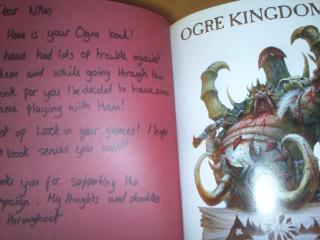 Dear
Here is your Ogre book!
I have had lots of trouble against
them and while going through this
book for you I decided to have a
game playing with Them!
of Luck in your games! I hope
book serves you well!
you for supporting the
. My thoughts and doodles
throughout
OGRE KINGDOM